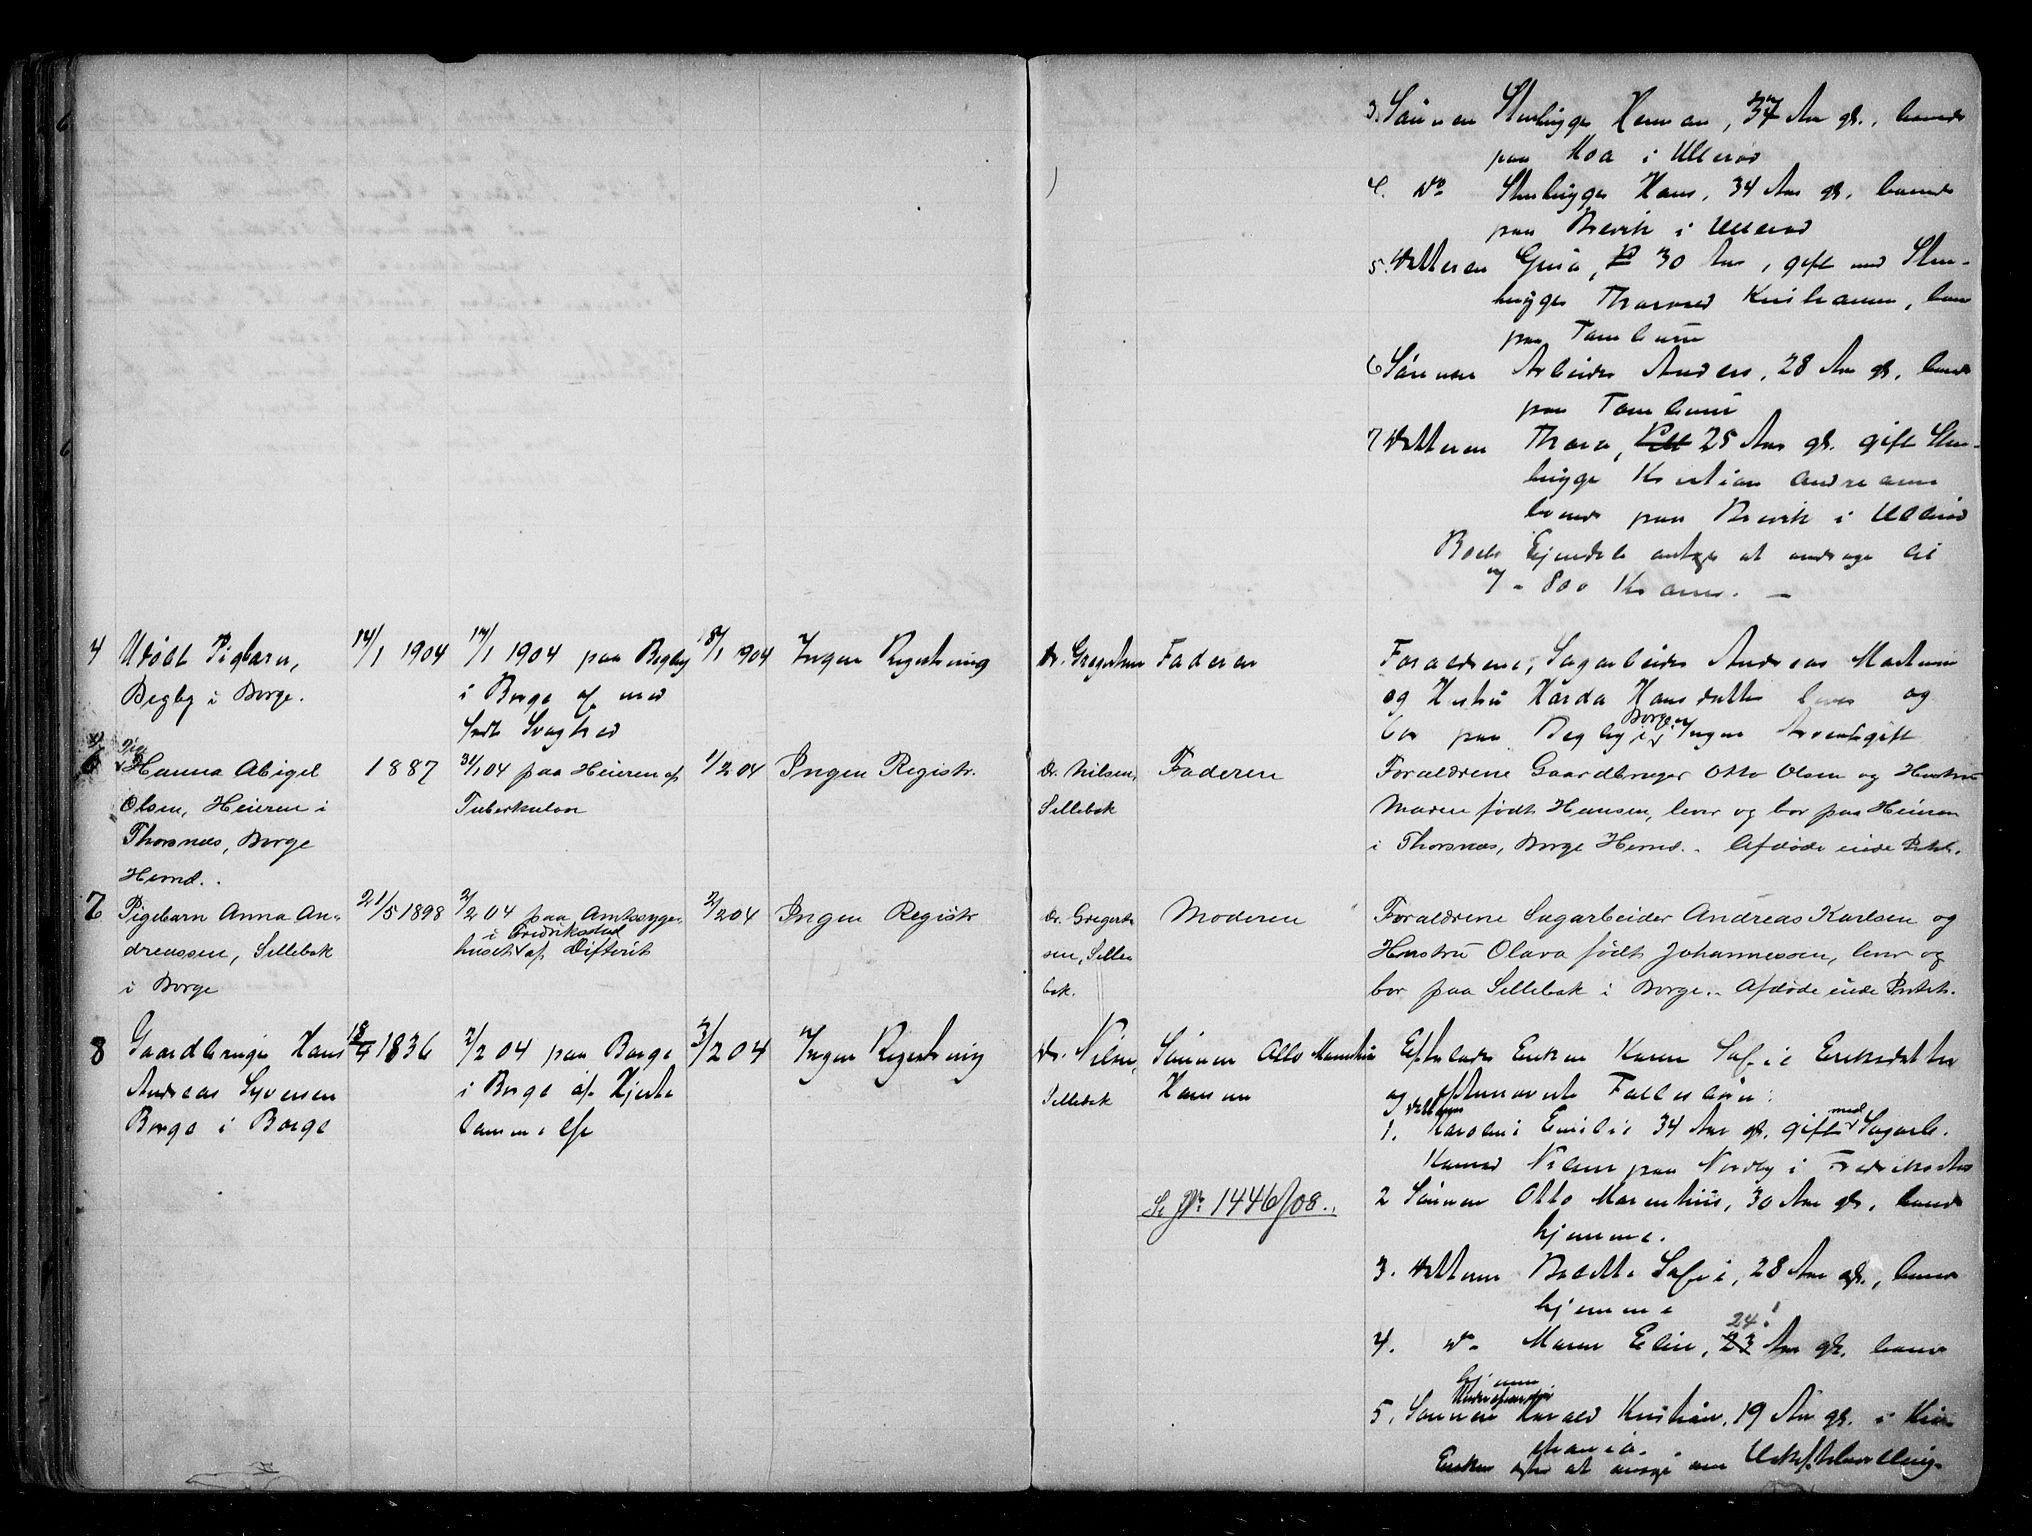 3. Sønnen Stenhugger Herman, 37 Aar gl., boende
paa Moa i Ullerød
4. Do Stenhugger Hans, 34 Aar gl. boende
paa Brevik i Ullerød
5. Datteren Gina, 30 Aar, gift med Sten-
hugger Thorvald Kristiansen, boende
paa Tombure
6 Sønnen Arbeider Anders, 28 Aar gl. boende
paa Tombure
7 Datteren Thora, 25 Aar gl. gift Sten-
hugger Kristian Andreasen
boende paa Brevik i Ullerød
Boets Ejendele antages at andrage til
7 - 800 Kroner. —
4 Udøbt Pigebarn,
Begby i Borge.
14/1 1904
17/1 1904 paa Begby
i Borge af med
født Svaghed
18/1 904
Ingen Registrering
Dr. Gregertsen
Faderen
Forældrene, Sagarbeider Andreas Martinsen
og Hustru Hårda Hansdatter lever og
bor paa Begby i Borge. Ingen Arveafgift
6 Pige Hanna Abigel
Olsen, Heieren i
Thorsnæs, Borge
Herred.
1887
31/1 04 paa Heieren af
Tuberkulose
1/2 04
Ingen Registr.
Dr. Nilsen,
Sellebak
Faderen
Forældrene Gaardbruger Otto Olsen og Hustru
Maren født Hansen, lever og bor paa Heieren
i Thorsnæs, Borge Herred. Afdøde eiede Intet.
7 Pigebarn Anna An-
dreassen, Sellebak
i Borge
21/5 1898
2/2 04 paa Amtssyge-
huset i Fredrikstad af Difterit
2/2 04
Ingen Registr
Dr. Gregert-
sen, Selle-
bak.
Moderen
Forældrene Sagarbeider Andreas Karlsen og
Hustru Olava født Johannessen, lever og
bor paa Sellebak i Borge. Afdøde eiede Intet.
8 Gaardbruger Hans
Andreas Syversen
Borge i Borge
18/4 1836
2/2 04 paa Borge
i Borge af Hjerte
lammelse
3/2 04
Ingen Registrering
Dr. Nilsen,
Sellebak
Sønnen Otto Marentius
Hansen
Se JNr 1446/08.
Efterlader Enken Karen Sofie Eriksdatter
og efternævnte Fællesbørn:
1. Datteren Karoline Emilie 34 Aar gl. gift med Sagarb.
Konrad Nilsen paa Nordby i Fredrikstad
2 Sønnen Otto Marentius, 30 Aar gl., boende
hjemme.
3. Datteren Bolette Sofie, 28 Aar gl., boende
hjemme
4. Do Maren Eline, 23 24! Aar gl. boende
hjemme
5. Sønnen Harald Kristian, 19 Aar gl. i Kris-
tiania.
Enken agter at ansøge om Uskiftebevilling.